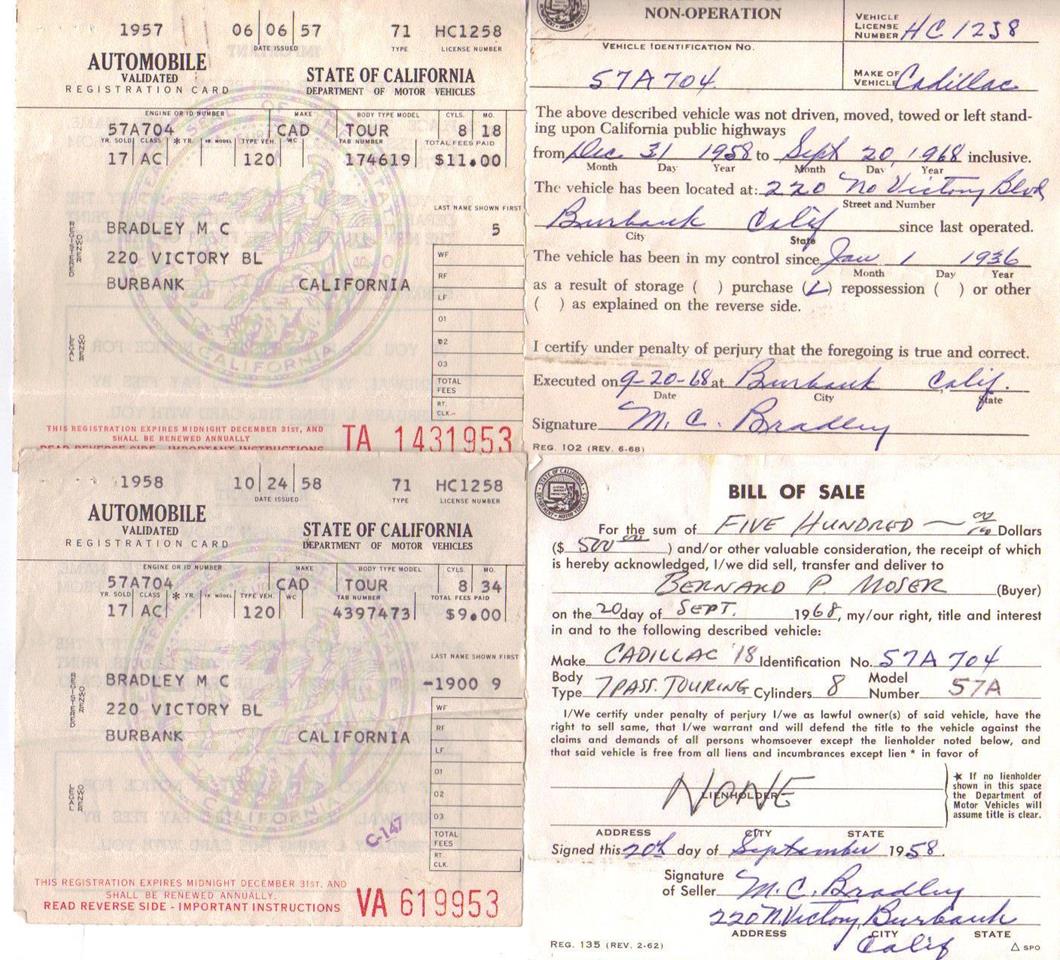 1957 06 06 57 71 HC1258
DATE ISSUED TYPE LICENSE NUMBER
AUTOMOBILE
VALIDATED
REGISTRATION CARD
STATE OF CALIFORNIA
DEPARTMENT OF MOTOR VEHICLES
ENGINE OR ID NUMBER MAKE BODY TYPE MODEL CYLS. MO.
57A704 CAD TOUR 8 18
YR. SOLD CLASS * YR. MODEL TYPE VEH. WC TAB NUMBER TOTAL FEES PAID
17 AC 120 174619 $11.00
LAST NAME SHOWN FIRST
REGISTERED OWNER
BRADLEY M C 5
220 VICTORY BL
BURBANK CALIFORNIA
WF
RF
LF
01
02
03
TOTAL FEES
RT. CLK.
LEGAL OWNER
THIS REGISTRATION EXPIRES MIDNIGHT DECEMBER 31ST, AND
SHALL BE RENEWED ANNUALLY
READ REVERSE SIDE - IMPORTANT INSTRUCTIONS
TA 1431953
NON-OPERATION
VEHICLE LICENSE NUMBER HC 1258
VEHICLE IDENTIFICATION NO.
57A704
MAKE OF VEHICLE Cadillac
The above described vehicle was not driven, moved, towed or left stand-
ing upon California public highways
from Dec. 31 1958 to Sept 20, 1968 inclusive.
Month Day Year Month Day Year
The vehicle has been located at: 220 No Victory Blvd
Street and Number
Burbank Calif since last operated.
City State
The vehicle has been in my control since Jan 1 1936
Month Day Year
as a result of storage ( ) purchase (L) repossession ( ) or other
( ) as explained on the reverse side.
I certify under penalty of perjury that the foregoing is true and correct.
Executed on 9-20-68 at Burbank Calif.
Date City State
Signature M. C. Bradley
REG. 102 (REV. 6-68)
1958 10 24 58 71 HC1258
DATE ISSUED TYPE LICENSE NUMBER
AUTOMOBILE
VALIDATED
REGISTRATION CARD
STATE OF CALIFORNIA
DEPARTMENT OF MOTOR VEHICLES
ENGINE OR ID NUMBER MAKE BODY TYPE MODEL CYLS. MO.
57A704 CAD TOUR 8 34
YR. SOLD CLASS * YR. MODEL TYPE VEH. WC TAB NUMBER TOTAL FEES PAID
17 AC 120 4397473 $9.00
LAST NAME SHOWN FIRST
REGISTERED OWNER
BRADLEY M C -1900 9
220 VICTORY BL
BURBANK CALIFORNIA
WF
RF
LF
01
02
03
TOTAL FEES
RT. CLK.
LEGAL OWNER
C-147
THIS REGISTRATION EXPIRES MIDNIGHT DECEMBER 31ST, AND
SHALL BE RENEWED ANNUALLY.
READ REVERSE SIDE - IMPORTANT INSTRUCTIONS
VA 619953
BILL OF SALE
For the sum of FIVE HUNDRED — 00/100 Dollars
($ 500 00 ) and/or other valuable consideration, the receipt of which
is hereby acknowledged, I/we did sell, transfer and deliver to
BERNARD P. MOSER (Buyer)
on the 20 day of SEPT. 1968, my/our right, title and interest
in and to the following described vehicle:
Make CADILLAC '18 Identification No. 57A 704
Body Type 7 PASS. TOURING Cylinders 8 Model Number 57A
I/We certify under penalty of perjury I/we as lawful owner(s) of said vehicle, have
the right to sell same, that I/we warrant and will defend the title to the vehicle against the
claims and demands of all persons whomsoever except the lienholder noted below, and
that said vehicle is free from all liens and incumbrances except lien * in favor of
NONE
LIENHOLDER
★ If no lienholder
shown in this space
the Department of
Motor Vehicles will
assume title is clear.
ADDRESS CITY STATE
Signed this 20th day of September 1958.
Signature of Seller M. C. Bradley
220 N. Victory, Burbank
ADDRESS CITY STATE
Calif
REG. 135 (REV. 2-62)
△ SPO